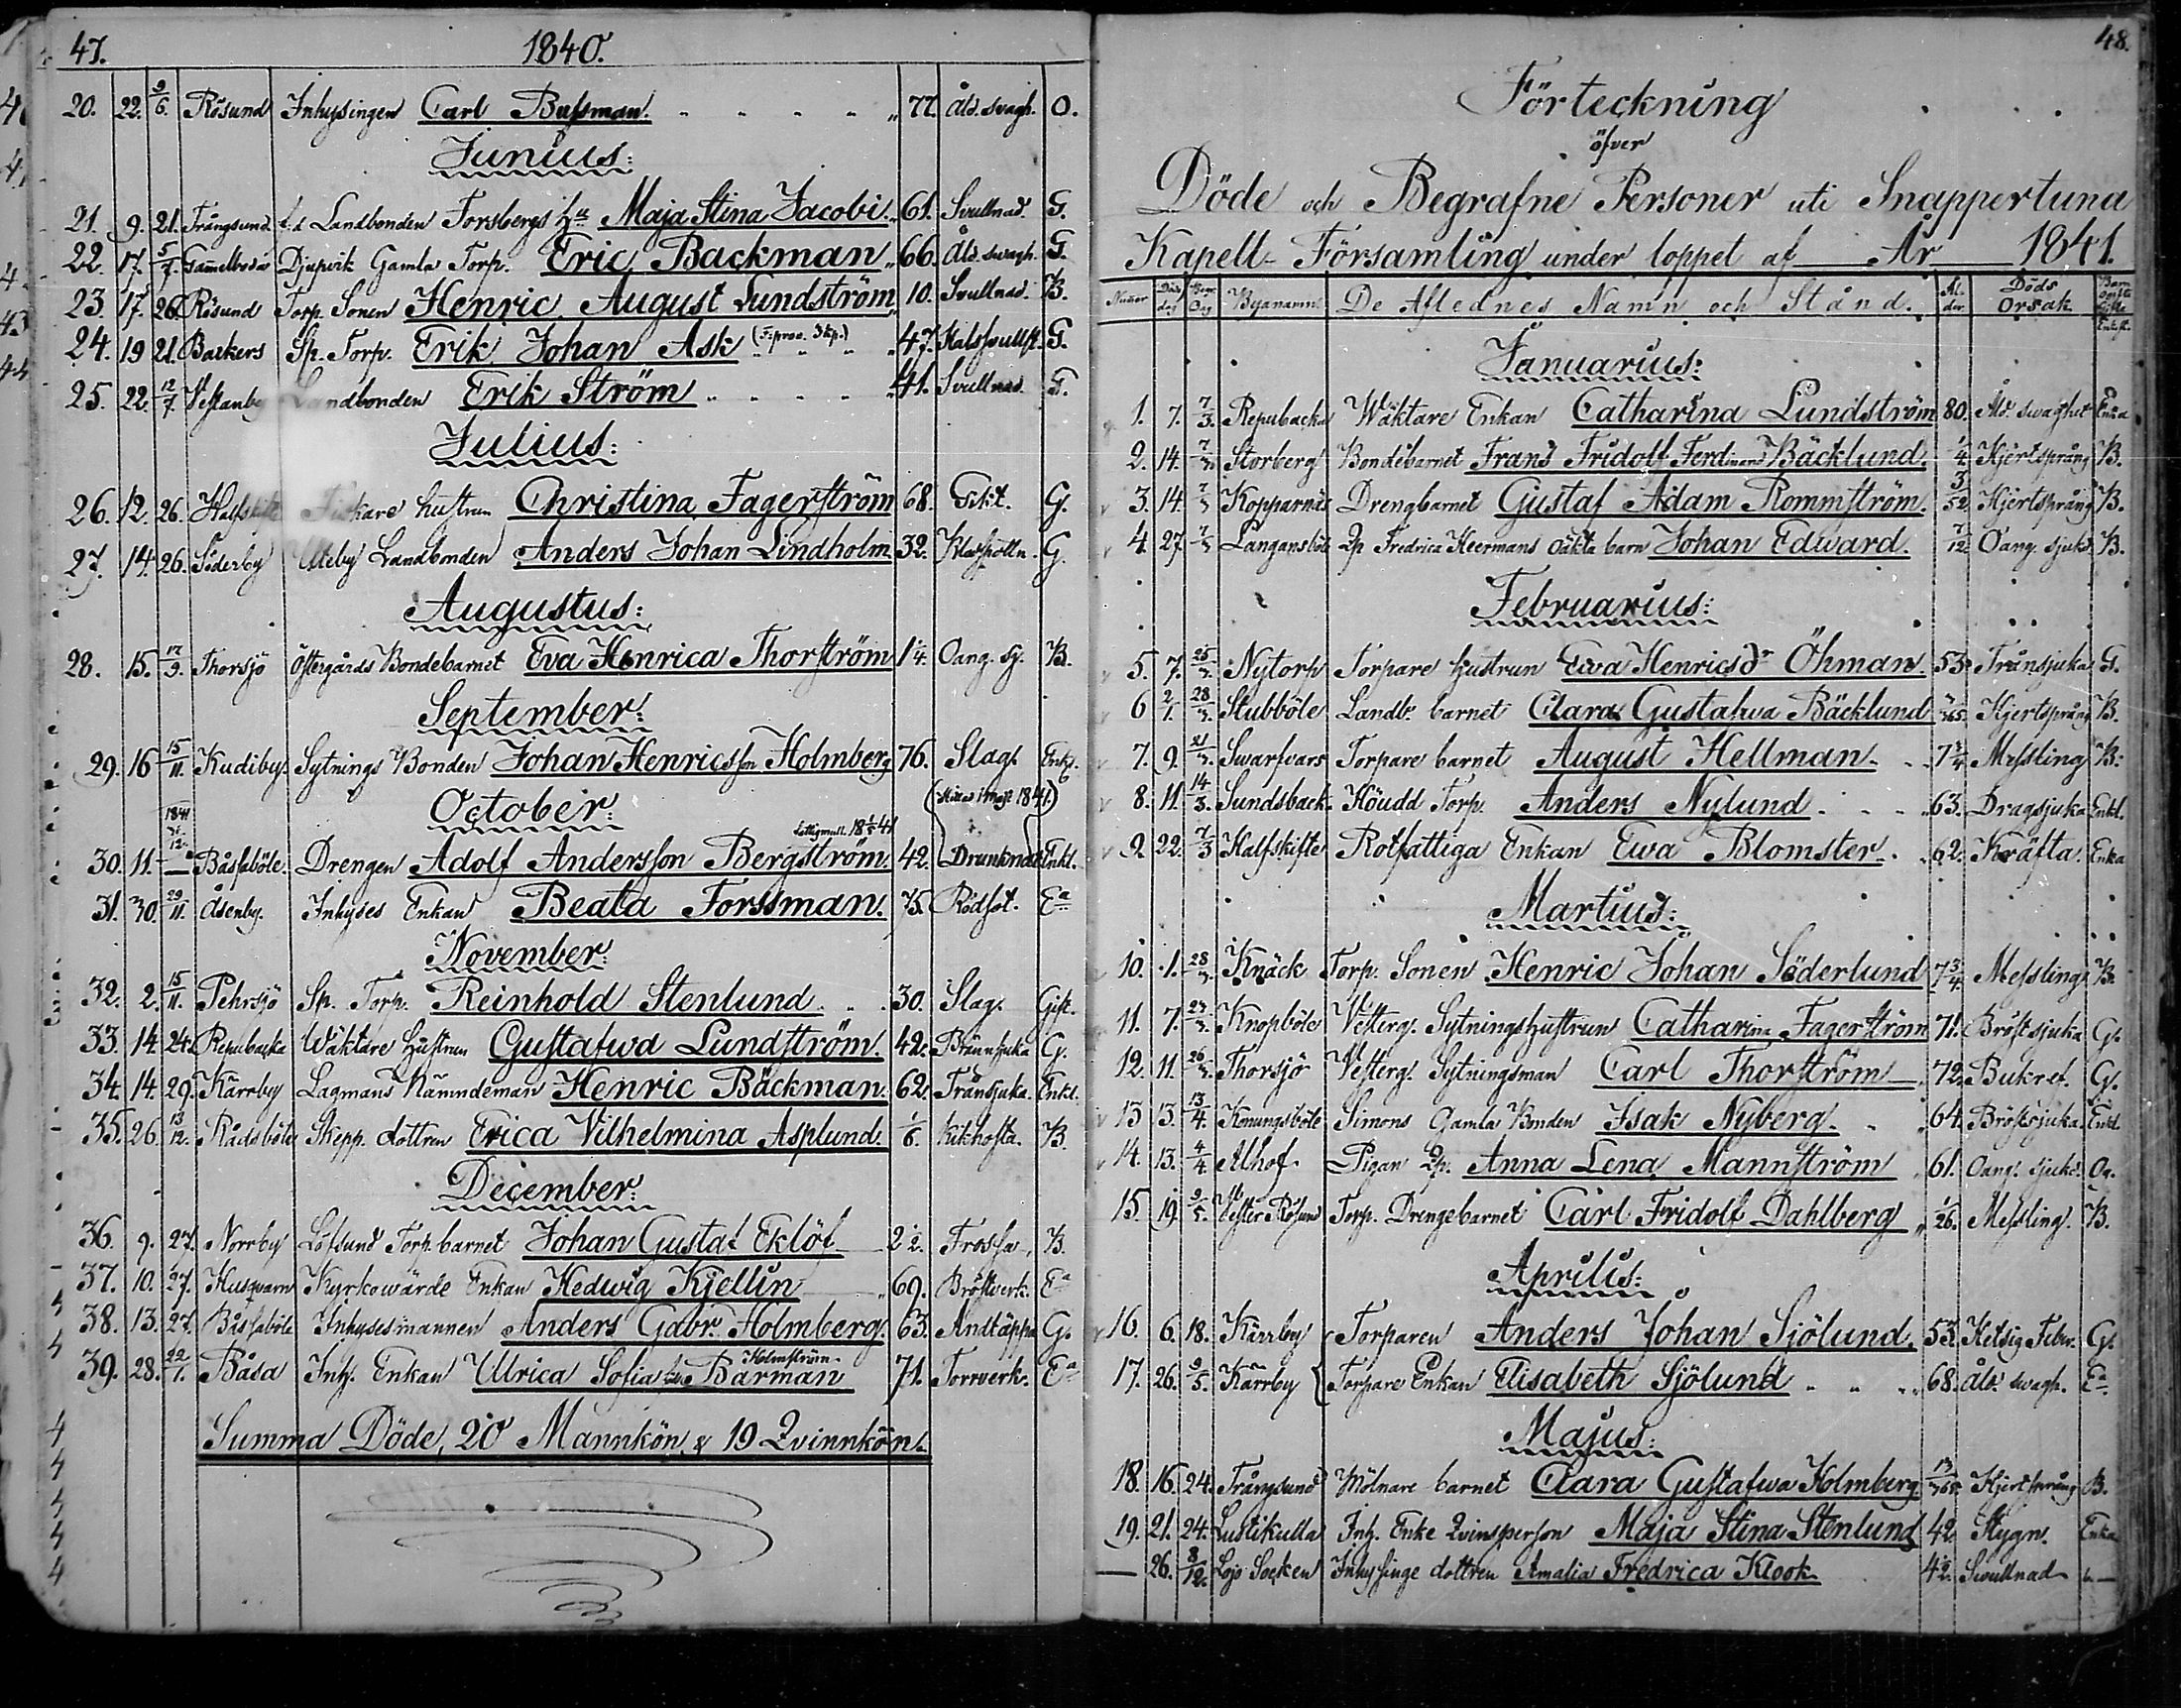 47. 1840.
20. 22. 9/6. Rösund Inhysingen Carl Bussman. 77. Åld. svagh. O.
Junius:
21. 9. 21. Trångsund f.d. Landbonden Forsbergs Hu Maja Stina Jacobi. 61. Svullnad. G.
22. 17. 5/7. Gamelboda Djupvik Gamla Torp. Eric Backman 66. Åld. swagh. G.
23. 17. 26. Rösund Torp. Sonen Henric August Lundström 10. Svullnad. B.
24. 19 21. Backers Sp. Torp. Erik Johan Ask 47. Halssvullst. G.
25. 22. 12/7. Vestanby Landbonden Erik Ström 41. Svullnad. G.
Julius:
26. 12. 26. Halfskifte Fiskare hustrun Christina Fagerström 68. Gikt. G.
27. 14. 26. Söderby Uteby Landbonden Anders Johan Lindholm 32. G.
Augustus:
28. 15. 17/9. Thorsjö Östergårds Bondebarnet Eva Henrica Thorström 1 1/4. Oang. sj. B.
September:
29. 16 15/11. Kudiby Sytnings Bonden Johan Henricsson Holmberg 76. Slag. Enkl.
October:
30. 11. Båssaböle. Drengen Adolf Andersson Bergström. 42. Drunknad Enkl.
31. 30. 29/11. Åsenby. Inhyses Enkan Beata Forssman. 75. Rödsot. Ea
November:
32. 2. 15/11. Pehrsjö Sp. Torp. Reinhold Stenlund 30. Slag. Gift.
33 14. 24. Repubacka Wäktare Hustrun Gustafwa Lundström. 42. Brännsjuka G.
34. 14. 29. Kärrby Lagmans Nämndeman Henric Bäckman. 62. Trånsjuka. Enkl.
35. 26. 13/12. Rådsböle Skepp. dottren Erica Vilhelmina Asplund. 1/6. Kikhosta. B.
December:
36. 9. 27. Norrby Löfsund Torp. barnet Johan Gustaf Eklöf 2 1/2. Frossa, B.
37. 10. 27. Husqvarn Kyrkowärde Enkan Hedwig Kjellin 69. Bröstverk. Ea
38. 13. 27. Båssaböle Inhysesmannen Anders Gabr. Holmberg. 63. Andtäppa G.
39. 28. 22/1. Båsa Inh. Enkan Ullrica Sofia Barman Holmström 71. Torrverk. Ea
Summa Döde, 20 Mannkön, & 19 Qvinnkön.
48.
Förteckning
öfver
Döde och Begrafne Personer uti Snappertuna
Kapell-Församling under loppet af År 1841.
Numer Döds dag Begr. Dag Byanamn De Aflednes Namn och Stånd. Ål- der Döds Orsak.
Januarius:
1. 7. 7/3. Repubacka Wäktare Enkan Catharina Lundström 80. Åld. swaghet Enka
2. 14. 7/3. Storberg Bondebarnet Frans Fridolf Ferdinand Bäcklund. 1/4. Hjertsprång B.
3. 14. 7/3 Kopparnäs Drengbarnet Gustaf Adam Rommström. 3/52. Hjertsprång B.
4. 27. 7/3 Langansböle Qp Fredrica Heermans oäkta barn Johan Edward. 7/12. Oang. sjukd. B.
Februarius:
5. 7. 25/3. Nytorp Torpare hustrun Ewa Henricsdr Öhman. 53. Trånsjuka G.
6 2/1. 28/3. Stubböle Landb. barnet Clara Gustafwa Bäcklund Hjertsprång B.
7. 9. 21/3. Swarfvars Torpare barnet August Hellman 7 3/4 Messling B.
8. 11. 14/3. Sundsback. Torp. Anders Nylund 63. Dragsjuka Enkl.
9. 22. 7/3 Halfskifte Rotfattiga Enkan Ewa Blomster. 62. Kräfta. Enka
Martius:
10. 1. 28/3. Knäck Torp. Sonen Henric Johan Söderlund 7 3/4. Messling B.
11. 7. 27/3. Knopböle Vesterg. Sytningshustrun Catharina Fagerström 71. Bröstsjuka G.
12. 11. 26/3. Thorsjö Vesterg. Sytningsman Carl Thorström 72. Bukref. G.
13 3. 13/4. Konungsböle Simons Gamla Bonden Isak Nyberg. 64. Bröstsjuka. Enkl.
14. 13. 4/4 Alhof. Pigan Qp. Anna Lena Mannström 61. Oang. sjukd. Og.
15. 19. 9/5. Vester Rösund Torp. Drengebarnet Carl Fridolf Dahlberg 1/26. Messling. B.
Aprilis:
16. 6. 18. Kärrby Torparen Anders Johan Sjölund. 53. Hetsig Feber. G.
17. 26. 9/5. Kärrby Torpare Enkan Elisabeth Sjölund 68. Åld. swagh. Ea
Majus:
18. 16. 24. Trångsund Mölnare barnet Clara Gustafwa Holmberg. 13/365. Hjertsprång B.
19. 21. 24. Lustikulla Inh. Enke Qvinsperson Maja Stina Stenlund 42 Stygn. Enka
— 26. 8/12. Lojo Socken Inhysinge dottren Amalia Fredrica Klook 4 1/2. Swullnad —